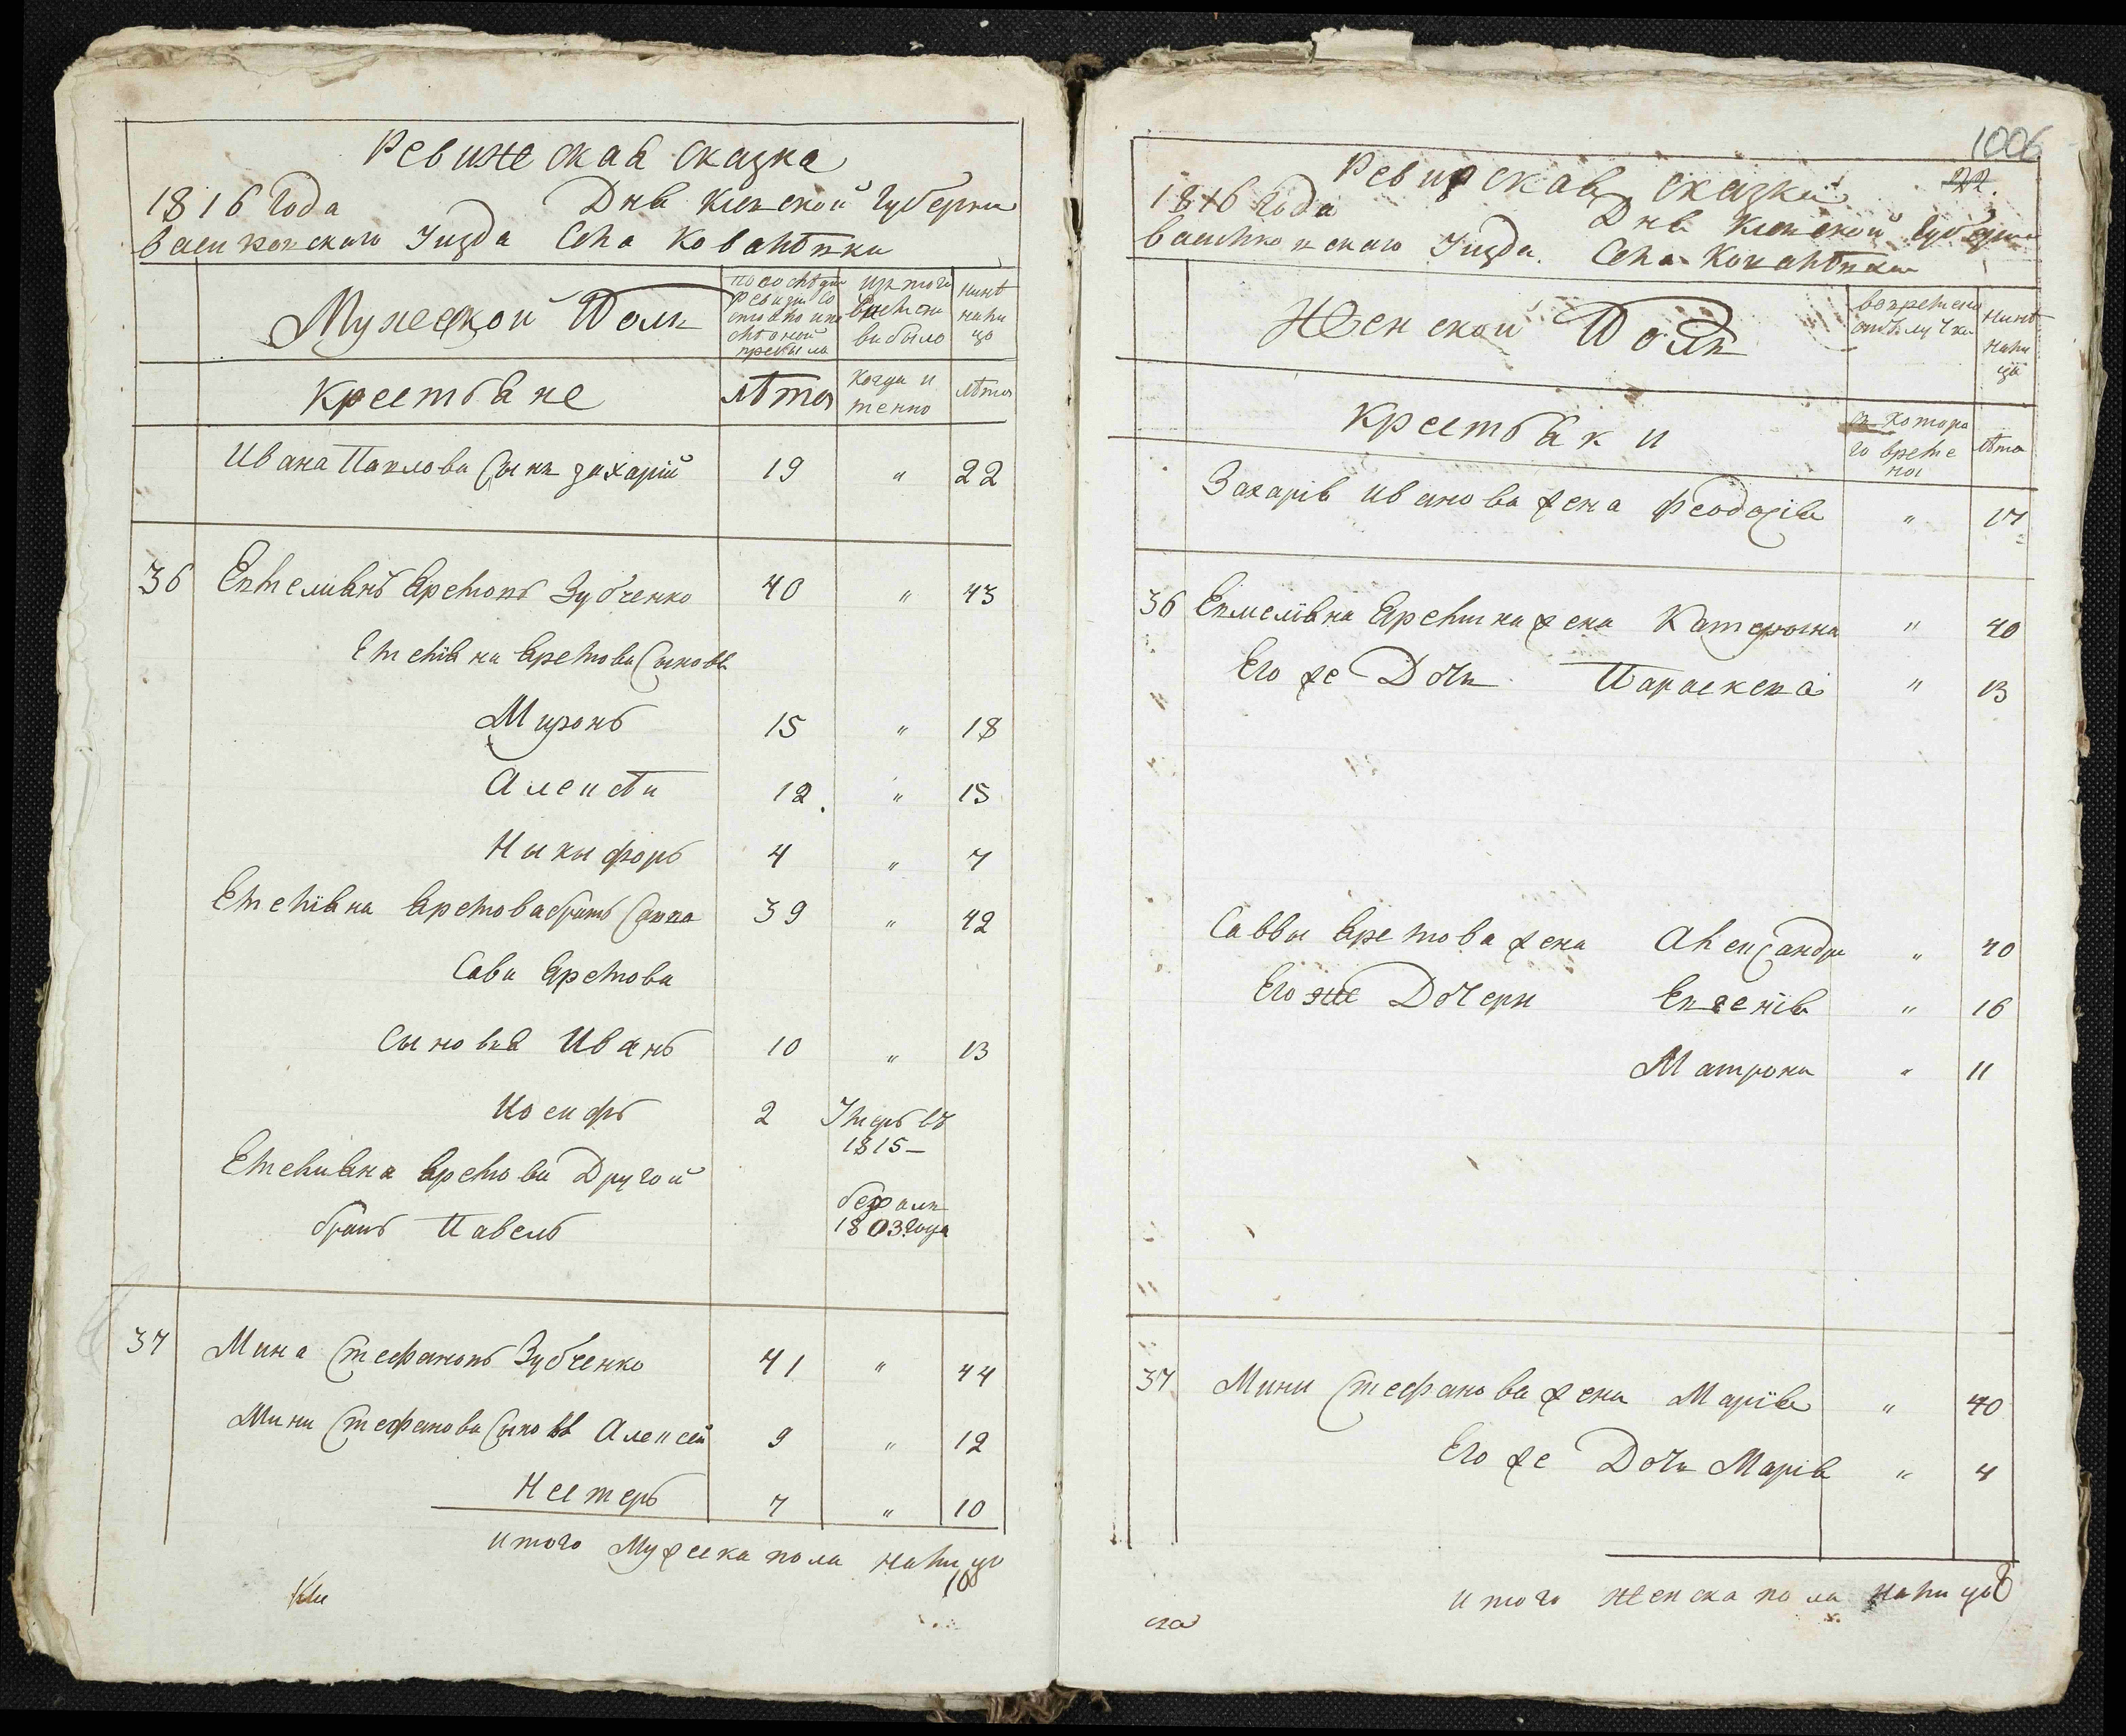 Ревижская сказка
1816 Года Дня Киевской Губернии
Васильковскаго Уизда Села Ковалѣвки
Мужеской Полъ
по последней ревизи состояло и после оной прибыло
изъ того числа выбыло
нинѣ на лицо
Крестьяне
лѣта
когда именно
лѣта
Ивана Павлова Сынъ захарій 19 " 22
36 Емелианъ Яремовъ Зубченко 40 " 43
Емеліяна Яремова Сыновя
Миронъ 15 " 18
Алексѣи 12. " 15
Ныкыфоръ 4 " 7
Емеліяна Яремова братъ Савва 39 " 42
Сави Яремова
Сыновья Иванъ 10 " 13
Иосифъ 2 Умеръ въ
1815 –
Емелияна Яремова Другой
братъ Павелъ бежалъ
1803 года
37 Мина Стефановъ Зубченко 41 " 44
Мини Стефанова Сыновя Алексей 9 " 12
Нестеръ 7 " 10
итого Мужеска пола налицо
10
1006
22.
Ревизская сказка
1816 Года Дня Киевской Губернии
Васильковскаго Уизда. Села Ковалѣвки
Женской Полъ
во временной отлучки
нинѣ на лицо
Крестьянки
съ которого времены
лѣта
Захарія Иванова жена Феодосія " 17
36 Емеліяна Яремина жена Катерына " 40
Его же Дочь Параскева " 13
Саввы Яремова жена Александра " 40
Его же Дочери Евгенія " 16
Матрона " 11
37 Мини Стефанова жена Марія " 40
Его же Дочь Марія " 4
итого женска пола налицо 8